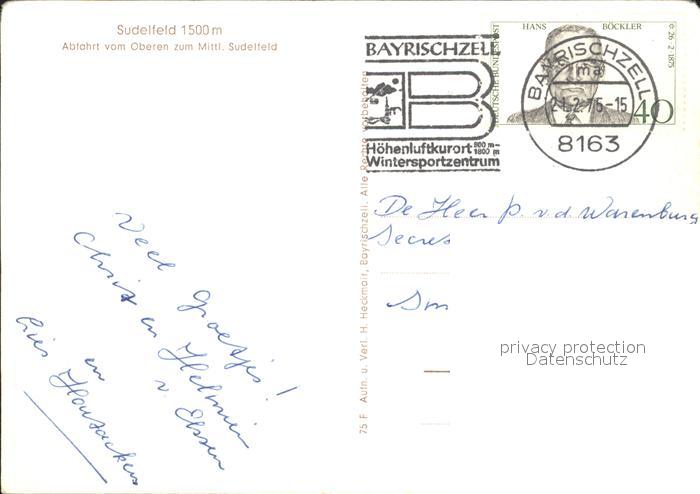 Sudelfeld 1500 m
Abfahrt vom Oberen zum Mittl. Sudelfeld
BAYRISCHZELL
B
Höhenluftkurort 800 m-1800 m
Wintersportzentrum
HANS BÖCKLER
DEUTSCHE BUNDESPOST
* 26·2·1875
40
BAYRISCHZELL
ma
21.2.76-15
8163
75 F Aufn. u. Verl. H. Heckmair, Bayrischzell. Alle Rechte vorbehalten
De Heer P. v.d. Warenburg
Secres
Veel Groetjes!
Chris en Helmin
v. Essen
en
Cries
privacy protection
Datenschutz